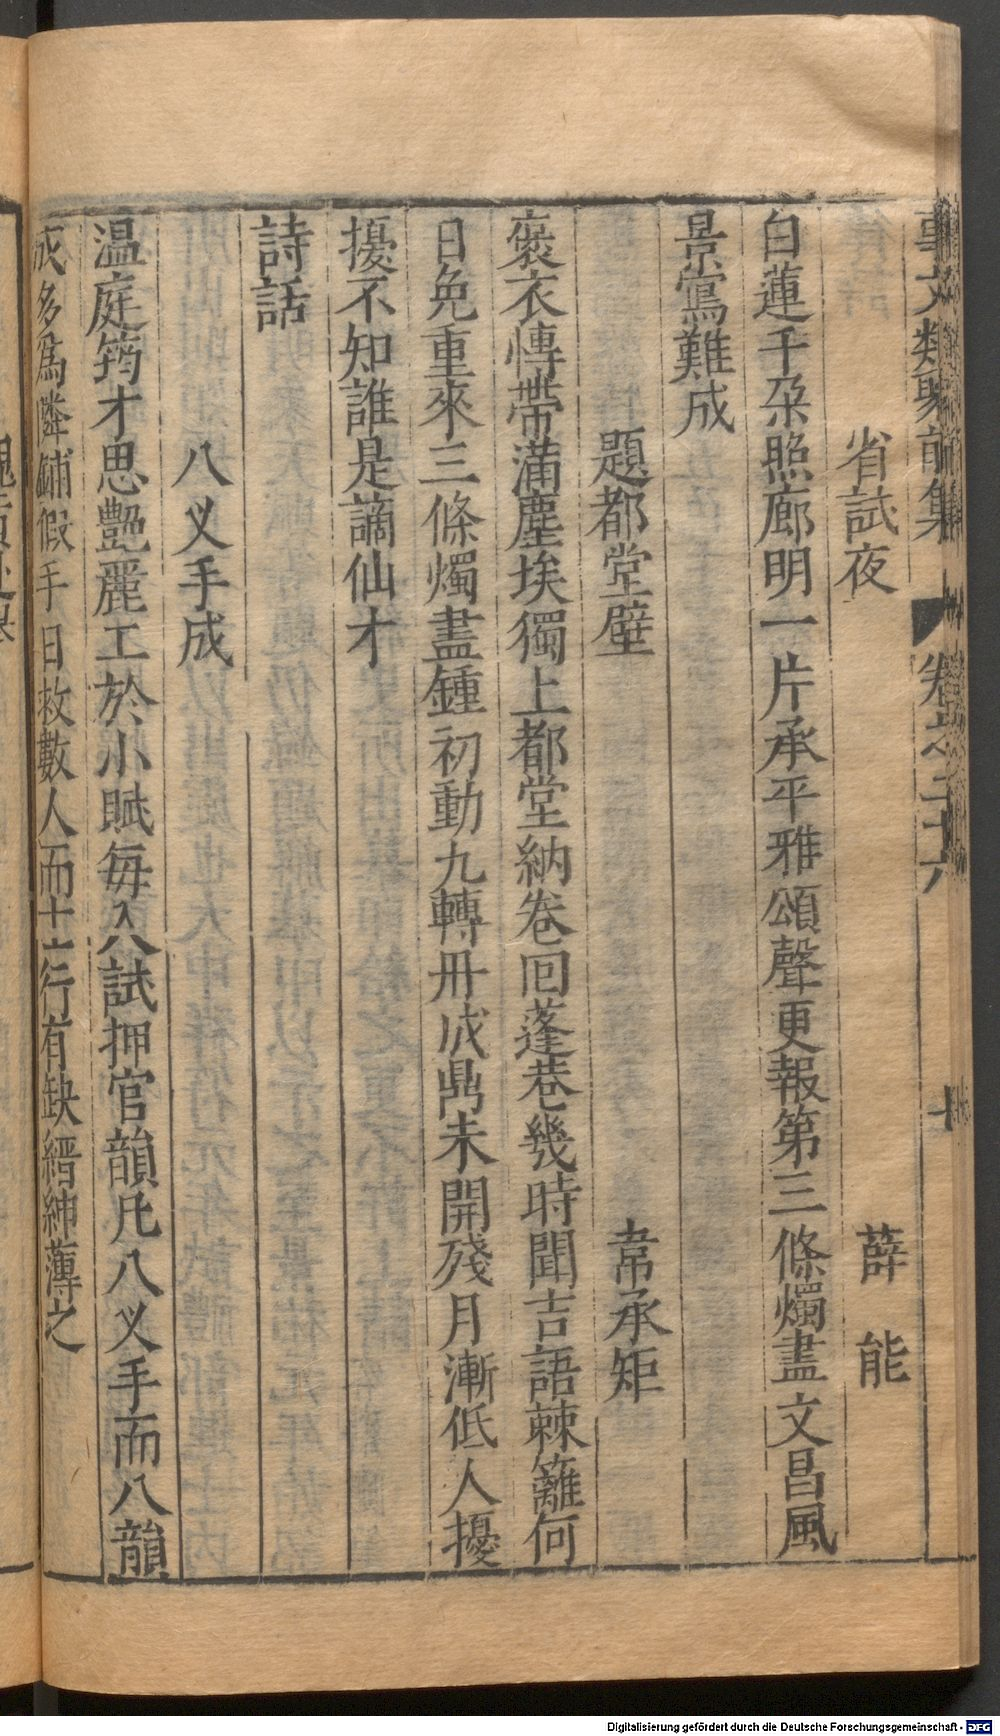 事文類聚前集 卷之二十六 十
省試夜 薛 能
白蓮千朶照廊明一片承平雅頌聲更報第三條燭盡文昌風
景寫難成
題都堂壁 韋承矩
褒衣愽帶滿塵埃獨上都堂納卷回蓬巷幾時聞吉語棘籬何
日免重來三條燭盡鍾初動九轉丹成鼎未開殘月漸低人擾
擾不知誰是謫仙才
詩話
八乂手成
温庭筠才思艷麗工於小賦每入試押官韻凡八乂手而八韻
成多爲隣鋪假手日救數人而士行有缺縉紳薄之
Digitalisierung gefördert durch die Deutsche Forschungsgemeinschaft - DFG